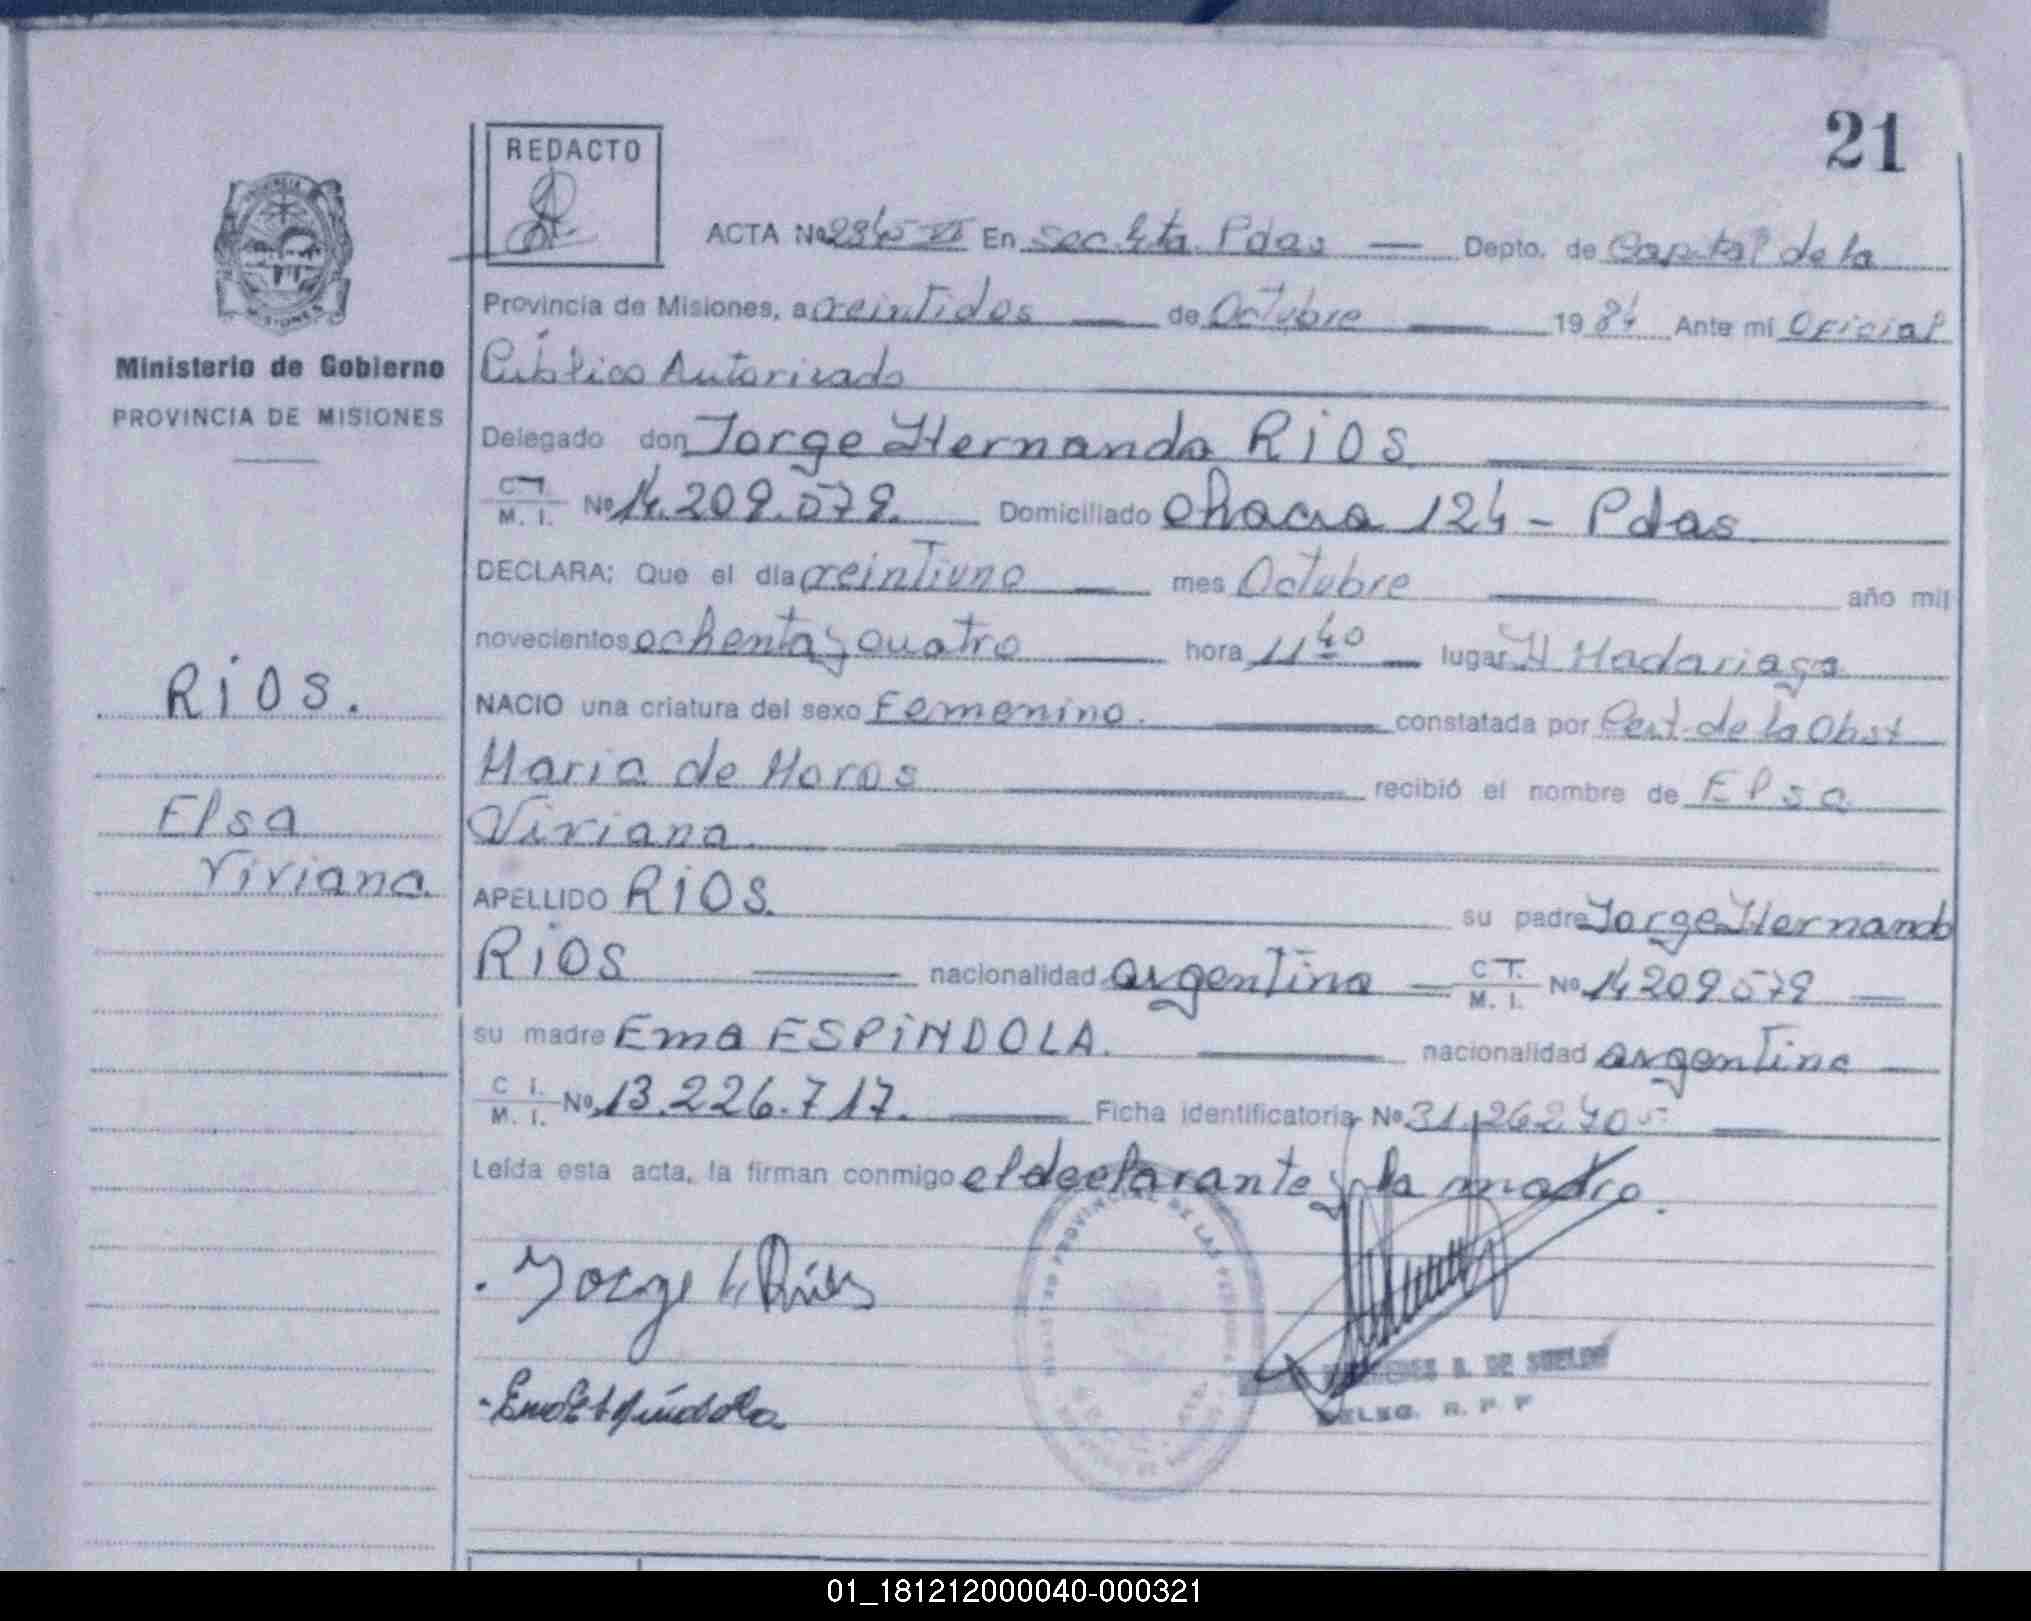 21
REDACTO
ACTA Nº 2345 VI En Sec 4ta Pdas — Depto. de Capital de la
Provincia de Misiones, a veintidos — de Octubre — 19 84 Ante mi Oficial
Público Autorizado
Ministerio de Gobierno
PROVINCIA DE MISIONES
Delegado don Jorge Hernando RIOS
C. I.
M. I. Nº 14.209.579. Domiciliado Chacra 124 - Pdas
DECLARA: Que el día veintiuno — mes Octubre — año mil
novecientos ochenta y cuatro — hora 11 40 — lugar H Madariaga
RIOS.
NACIO una criatura del sexo Femenino. — constatada por Cert. de la Obst
Maria de Moros — recibió el nombre de Elsa
Elsa
Viviana.
Viviana.
APELLIDO RIOS. su padre Jorge Hernando
RIOS — nacionalidad argentina — C. I.
M. I. Nº 14209579 —
su madre Ema ESPINDOLA. — nacionalidad argentina —
C. I.
M. I. Nº 13.226.717. — Ficha identificatoria Nº 31.262.405 —
Leída esta acta, la firman conmigo el declarante y la madre.
Jorge H Rios
Ema Espíndola
DE LAS PERSONAS
B. DE SUELDO
DELEG. R. P. P
01_181212000040-000321